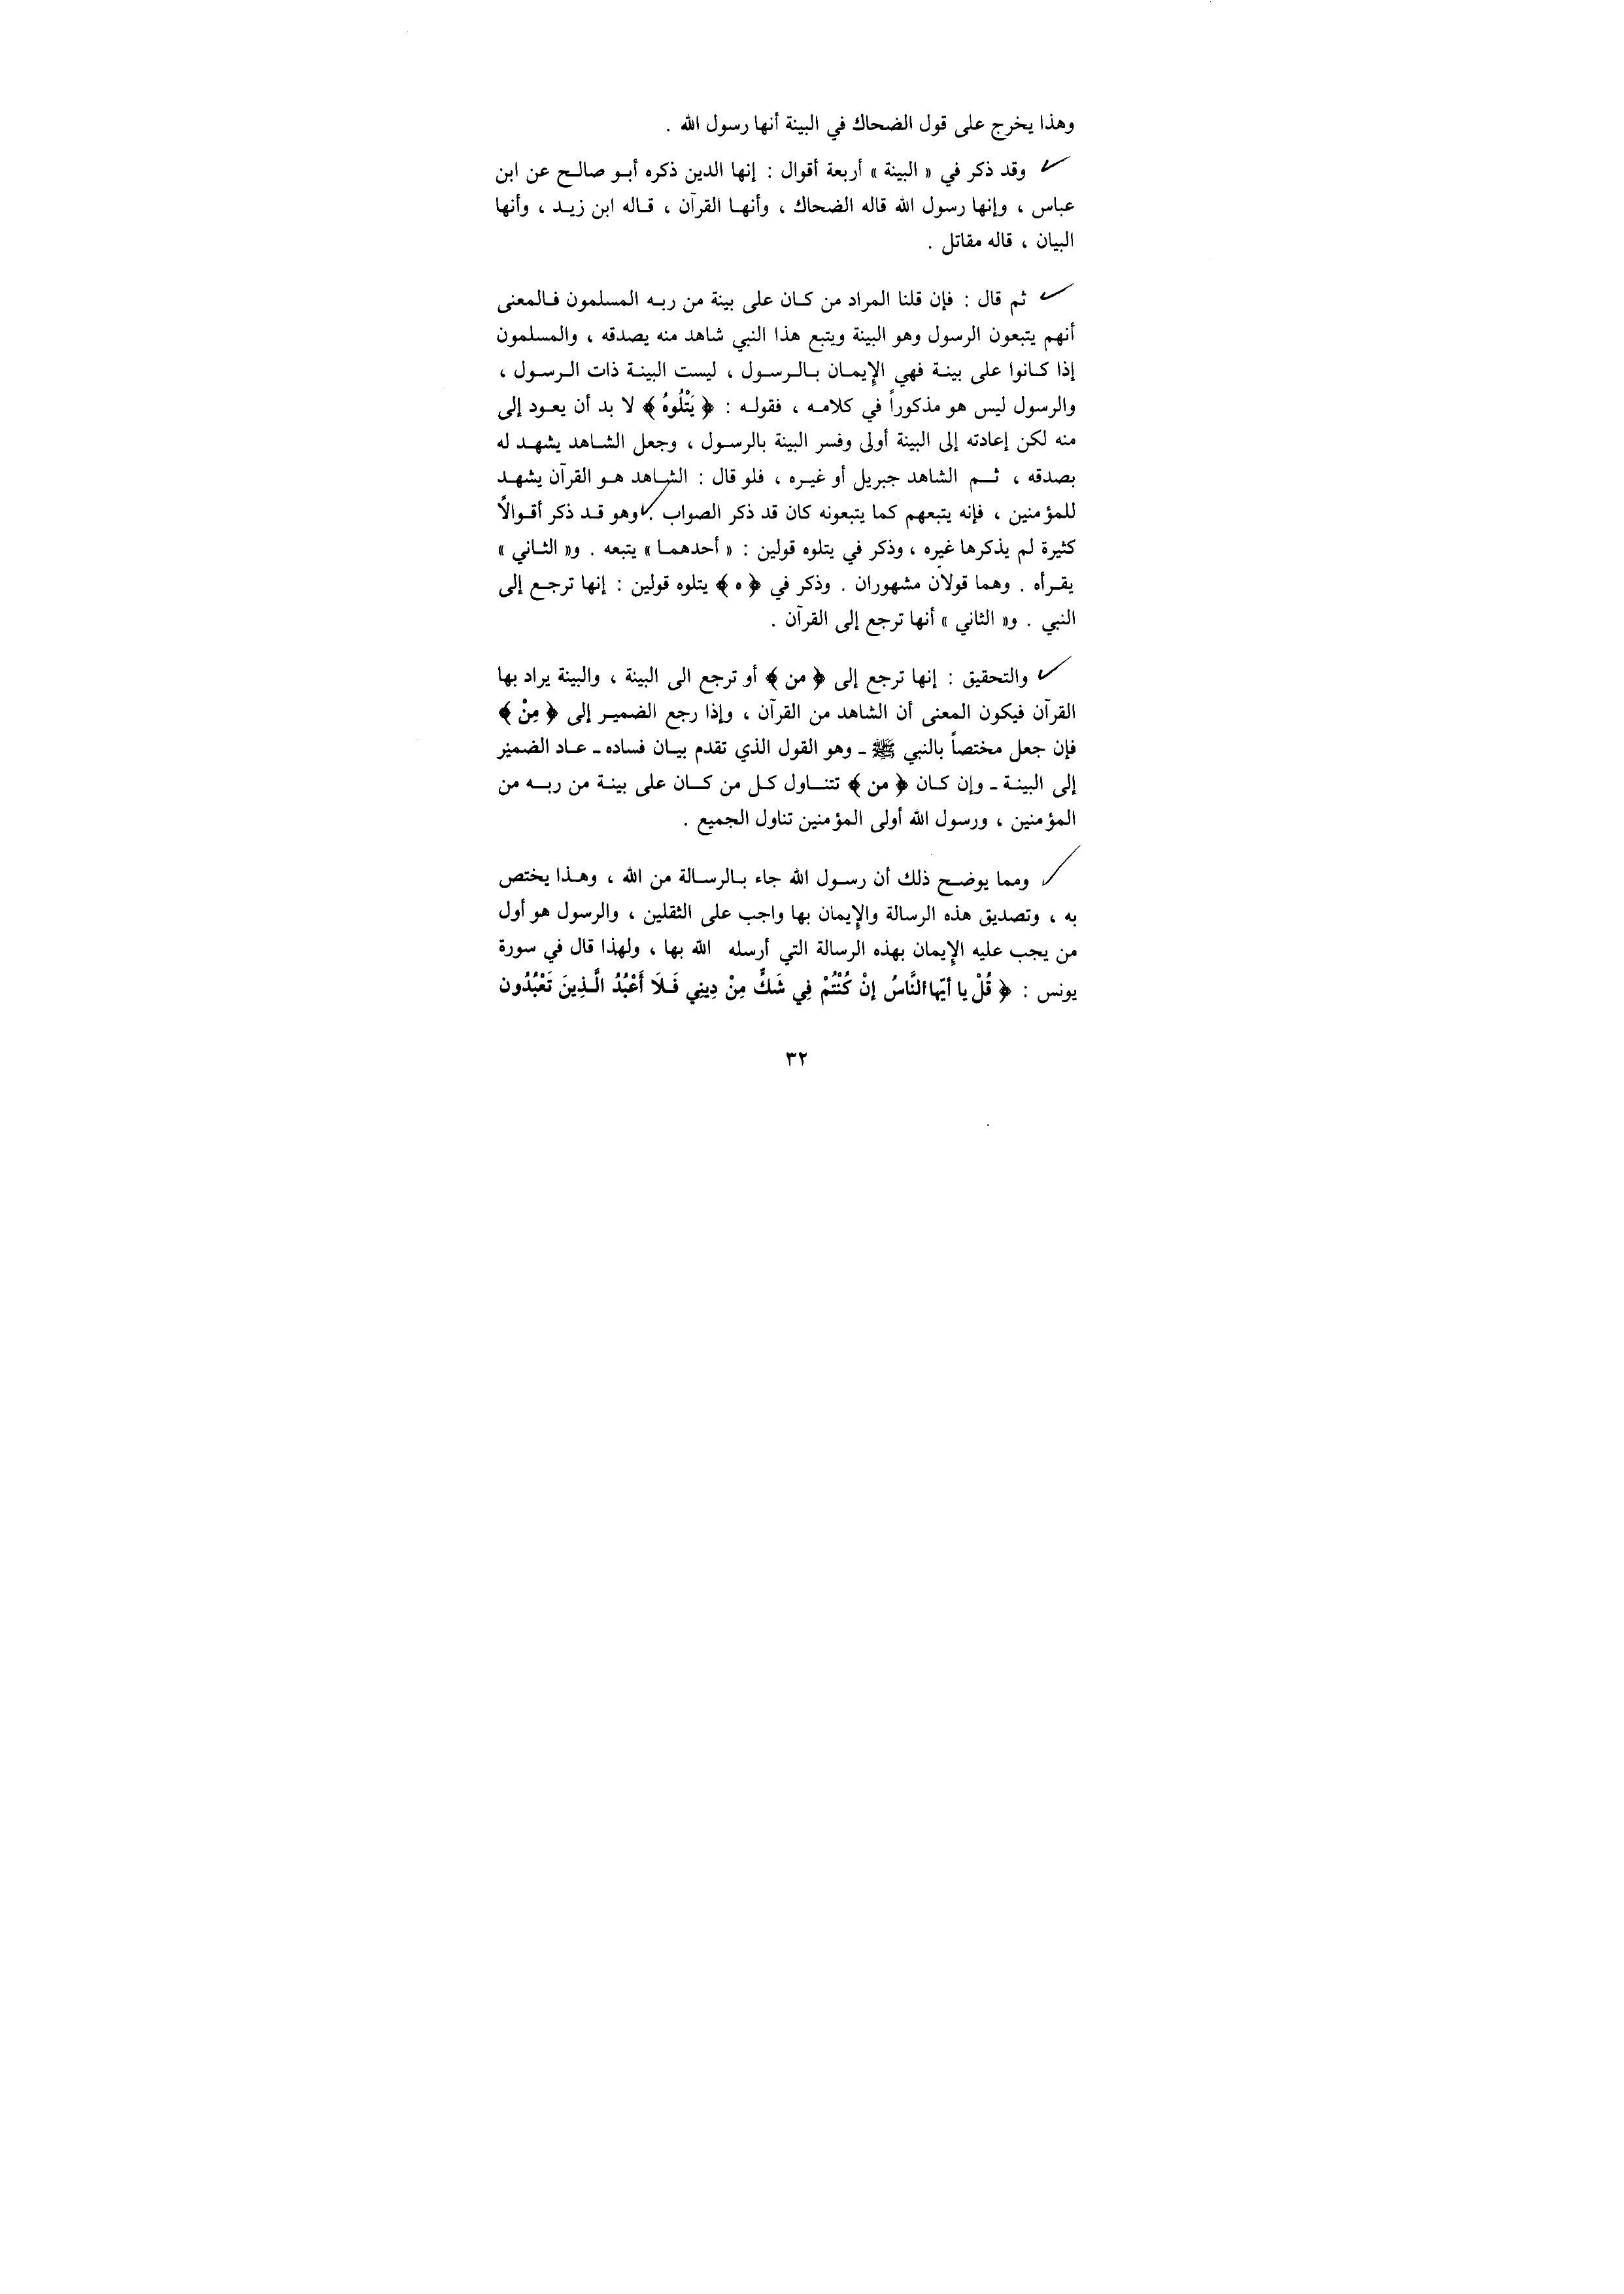 وهذا يخرج على قول الضحاك في البينة أنها رسول الله .
وقد ذكر في « البينة » أربعة أقوال : إنها الدين ذكره أبو صالح عن ابن
عباس ، وإنها رسول الله قاله الضحاك ، وأنها القرآن ، قاله ابن زيد ، وأنها
البيان ، قاله مقاتل .
ثم قال : فإن قلنا المراد من كان على بينة من ربه المسلمون فالمعنى
أنهم يتبعون الرسول وهو البينة ويتبع هذا النبي شاهد منه يصدقه ، والمسلمون
إذا كانوا على بينة فهي الإيمان بالرسول ، ليست البينة ذات الرسول ،
والرسول ليس هو مذكوراً في كلامه ، فقوله : ﴿ يَتْلُوهُ ﴾ لا بد أن يعود إلى
منه لكن إعادته إلى البينة أولى وفسر البينة بالرسول ، وجعل الشاهد يشهد له
بصدقه ، ثم الشاهد جبريل أو غيره ، فلو قال : الشاهد هو القرآن يشهد
للمؤمنين ، فإنه يتبعهم كما يتبعونه كان قد ذكر الصواب . وهو قد ذكر أقوالًا
كثيرة لم يذكرها غيره ، وذكر في يتلوه قولين : « أحدهما » يتبعه . و« الثاني »
يقرأه . وهما قولان مشهوران . وذكر في ﴿ ه ﴾ يتلوه قولين : إنها ترجع إلى
النبي . و« الثاني » أنها ترجع إلى القرآن .
والتحقيق : إنها ترجع إلى ﴿ من ﴾ أو ترجع الى البينة ، والبينة يراد بها
القرآن فيكون المعنى أن الشاهد من القرآن ، وإذا رجع الضمير إلى ﴿ مِنْ ﴾
فإن جعل مختصاً بالنبي ﷺ ـ وهو القول الذي تقدم بيان فساده ـ عاد الضمير
إلى البينة ـ وإن كان ﴿ من ﴾ تتناول كل من كان على بينة من ربه من
المؤمنين ، ورسول الله أولى المؤمنين تناول الجميع .
ومما يوضح ذلك أن رسول الله جاء بالرسالة من الله ، وهذا يختص
به ، وتصديق هذه الرسالة والإيمان بها واجب على الثقلين ، والرسول هو أول
من يجب عليه الإيمان بهذه الرسالة التي أرسله الله بها ، ولهذا قال في سورة
يونس : ﴿ قُلْ يا أيّها النَّاسُ إنْ كُنْتُمْ فِي شَكٍّ مِنْ دِينِي فَلَا أَعْبُدُ الَّذِينَ تَعْبُدُون
٣٢